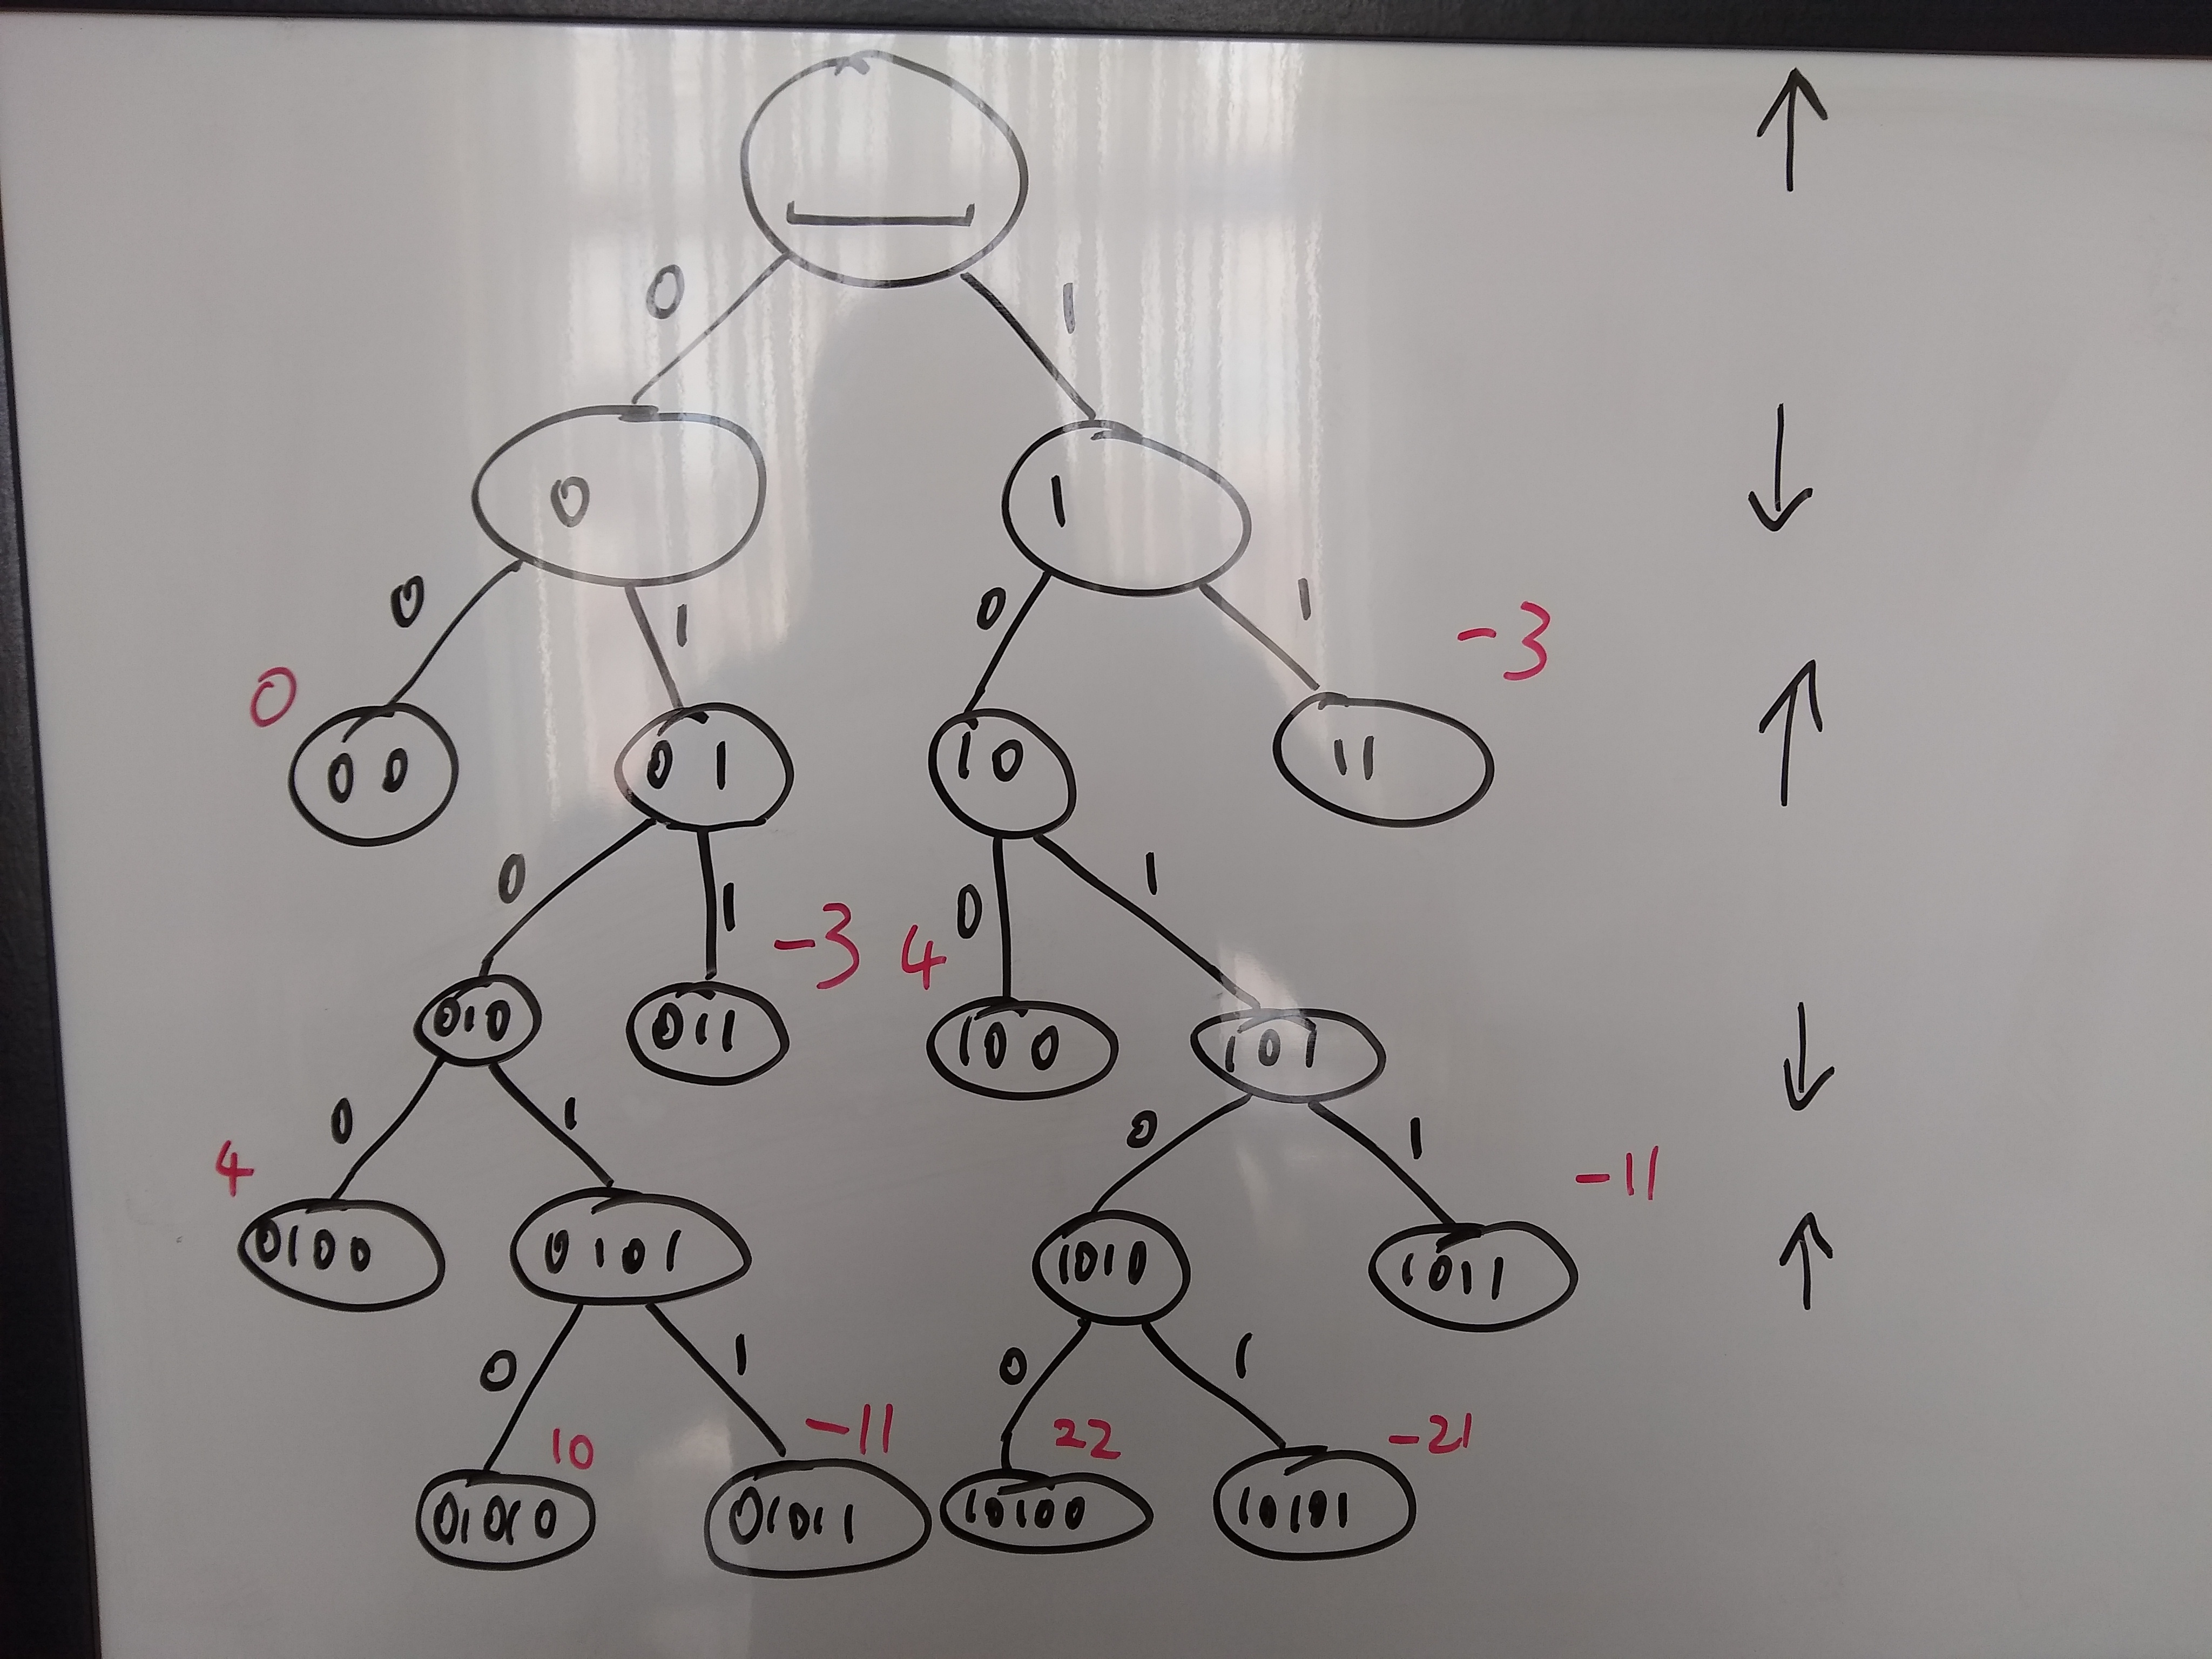 0 1
0 1
0 1 0 1 -3
0 00 01 10 11
0 1 -3 4 0 1
010 011 100 101
0 1 0 1
4 -11
0100 0101 1010 1011
0 1 0 1
10 -11 22 -21
01010 01011 10100 10101